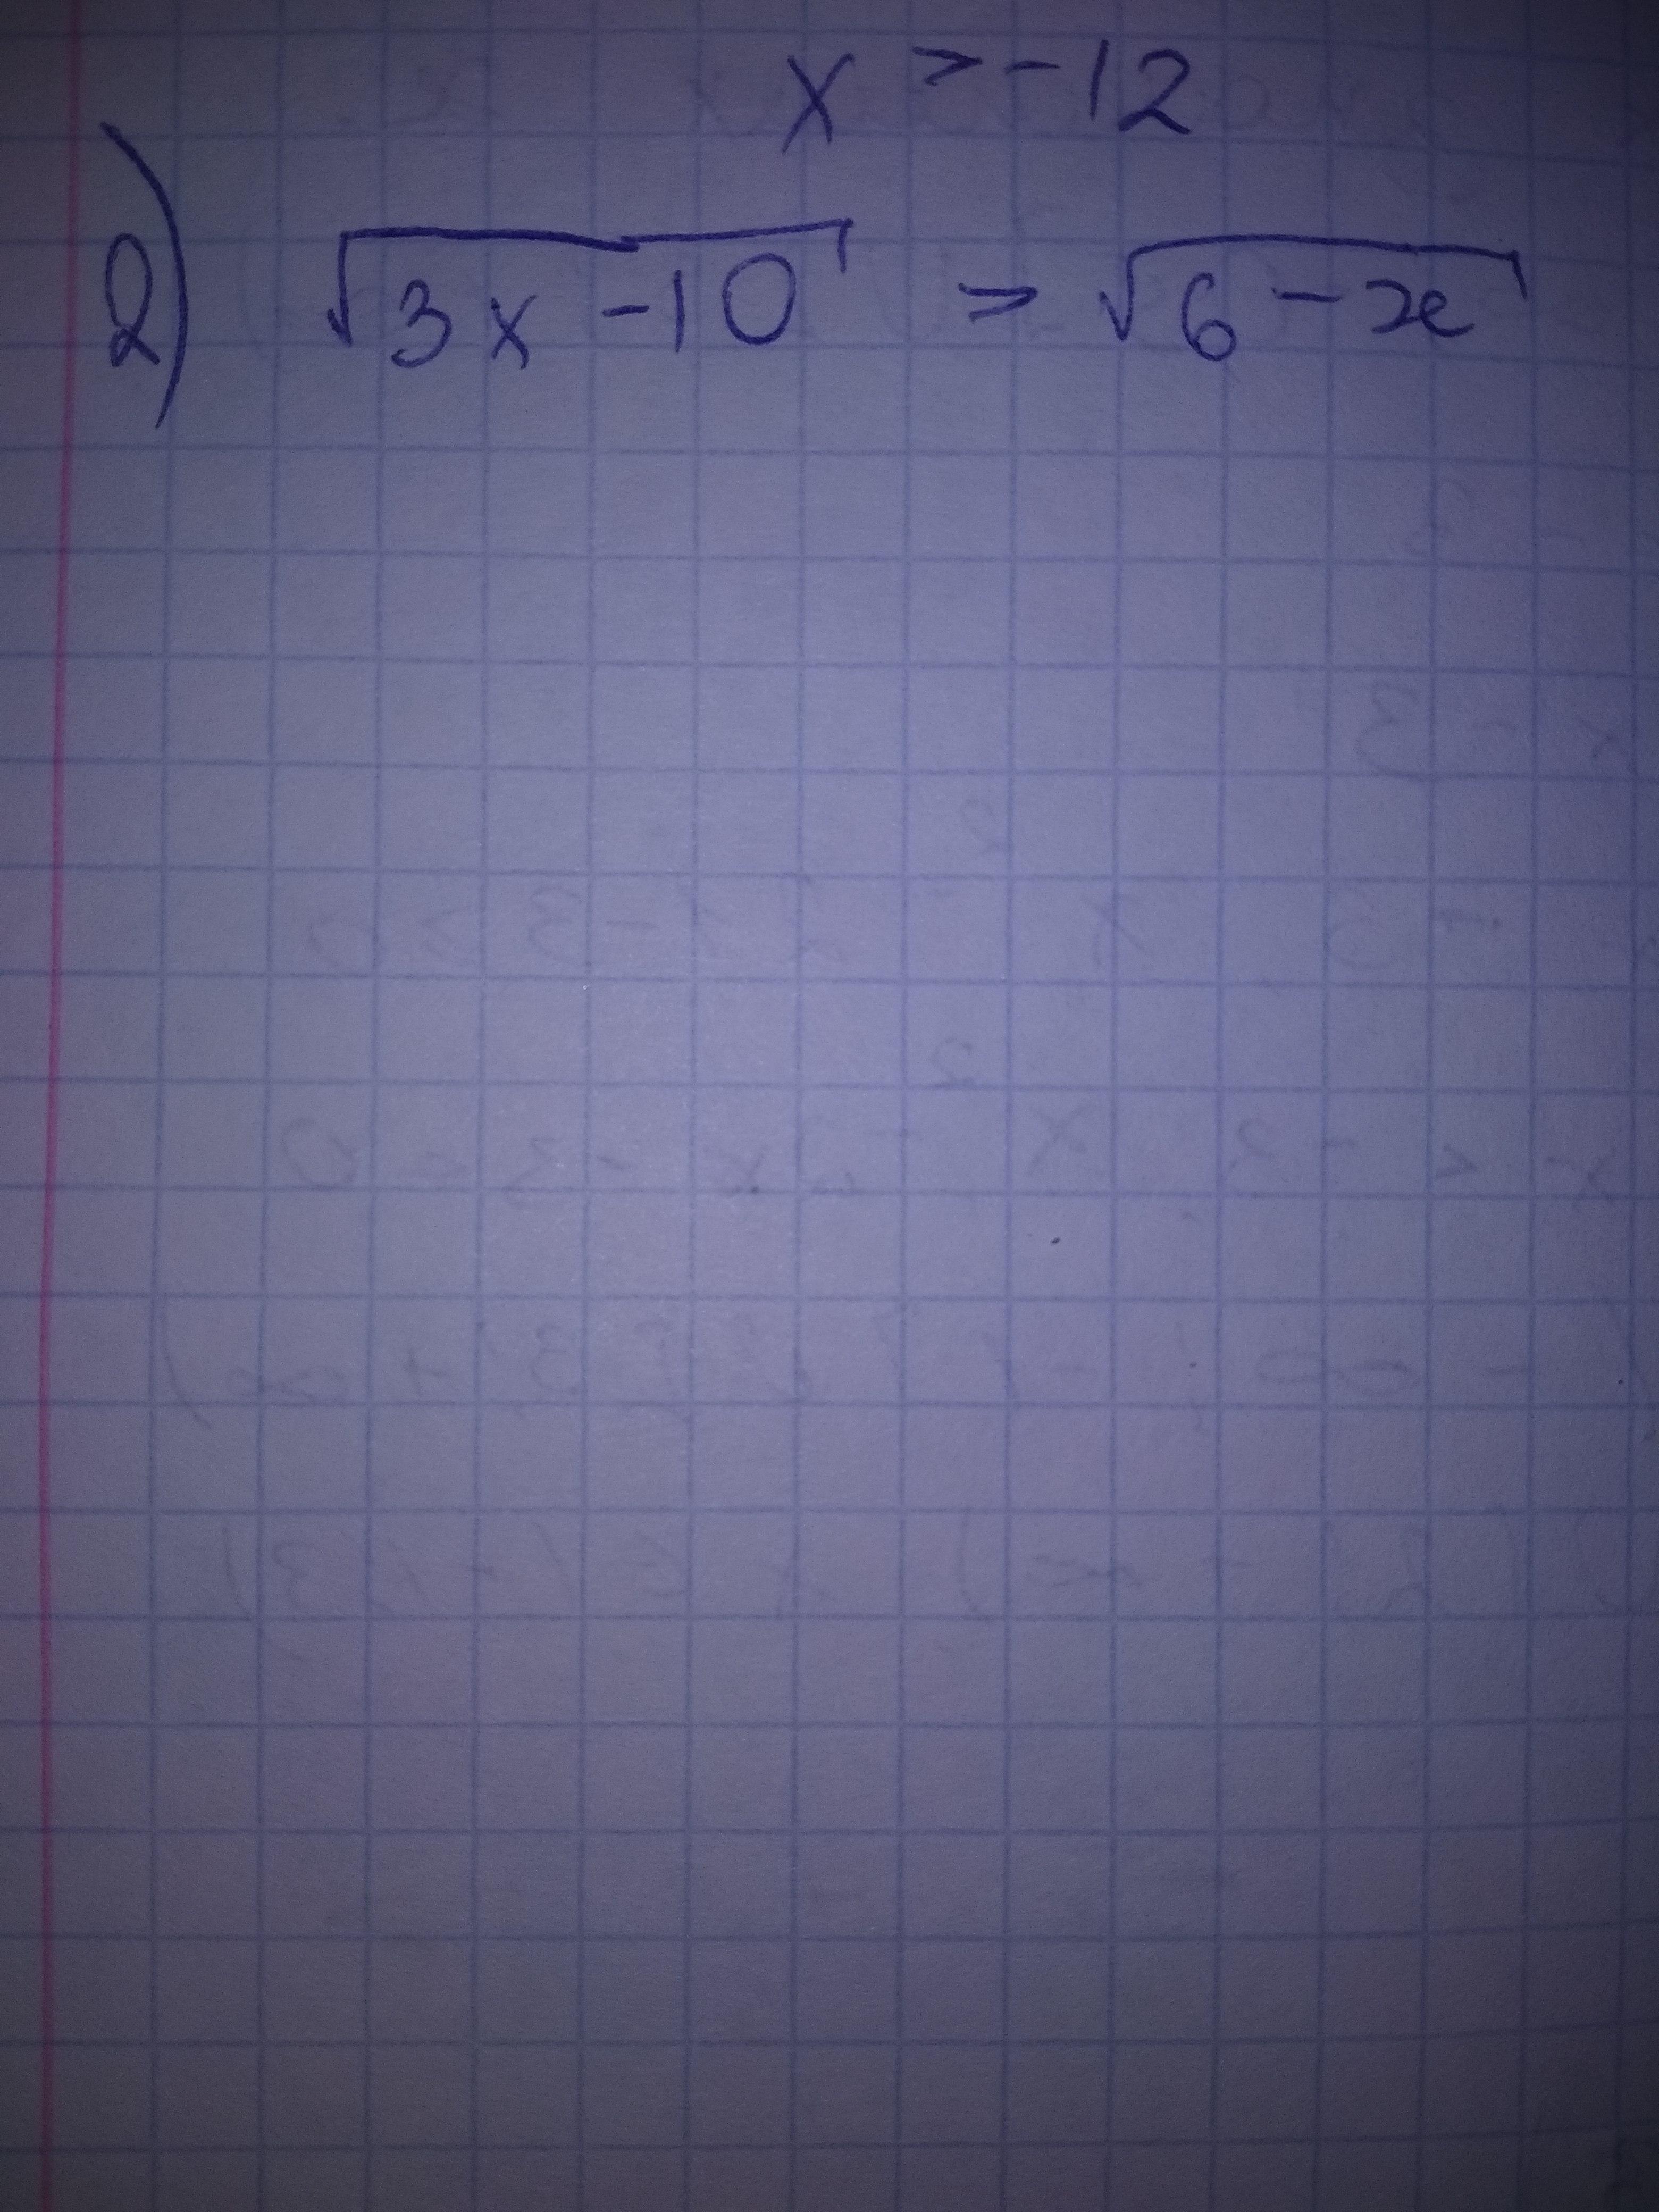 x > -12
2) √3x - 10 > √6 - x